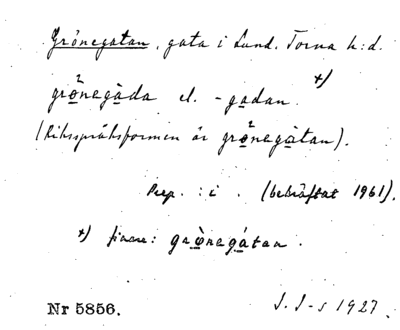 Grönegatan, gata i Lund. Torna h:d.
grönegàda el. -gadan. +)
(Riksspråksformen är grönegàtan).
Prep. : i . (bekräftat 1961).
+) finare: grönegátan.
Nr 5856.
J. J-s 1927.